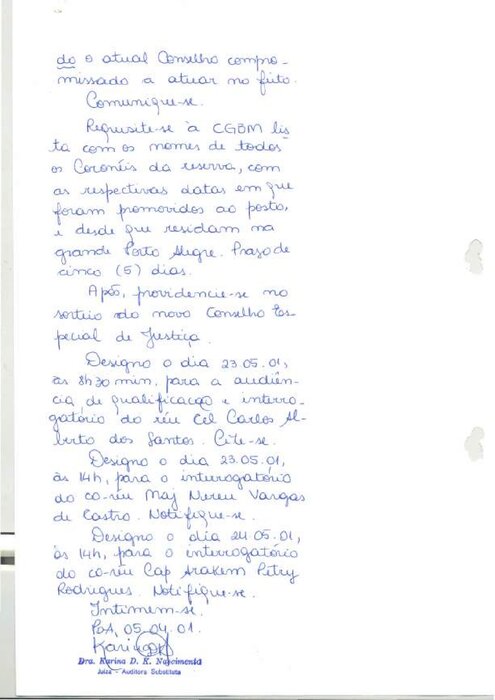 do o atual Conselho compro-
missado a atuar no feito.
Comunique-se.
Requisite-se à CGBM lis
ta com os nomes de todos
os Coronéis da reserva, com
as respectivas datas em que
foram promovidos ao posto,
e desde que residam na
grande Porto Alegre. Prazo de
cinco (5) dias.
Após, providencie-se no
sorteio do novo Conselho Es
pecial de Justiça.
Designo o dia 23.05.01,
às 8h30min, para a audiên-
cia de qualificação e interro-
gatório do réu Cel Carlos Al-
berto dos Santos. Cite-se.
Designo o dia 23.05.01,
às 14h, para o interrogatório
do co-réu Maj Nereu Vargas
de Castro. Notifique-se.
Designo o dia 24.05.01,
às 14h, para o interrogatório
do co-réu Cap Arakem Petry
Rodrigues. Notifique-se.
Intimem-se.
PoA, 05.04.01.
Dra. Karina D. K. Nascimento
Juíza - Auditora Substituta